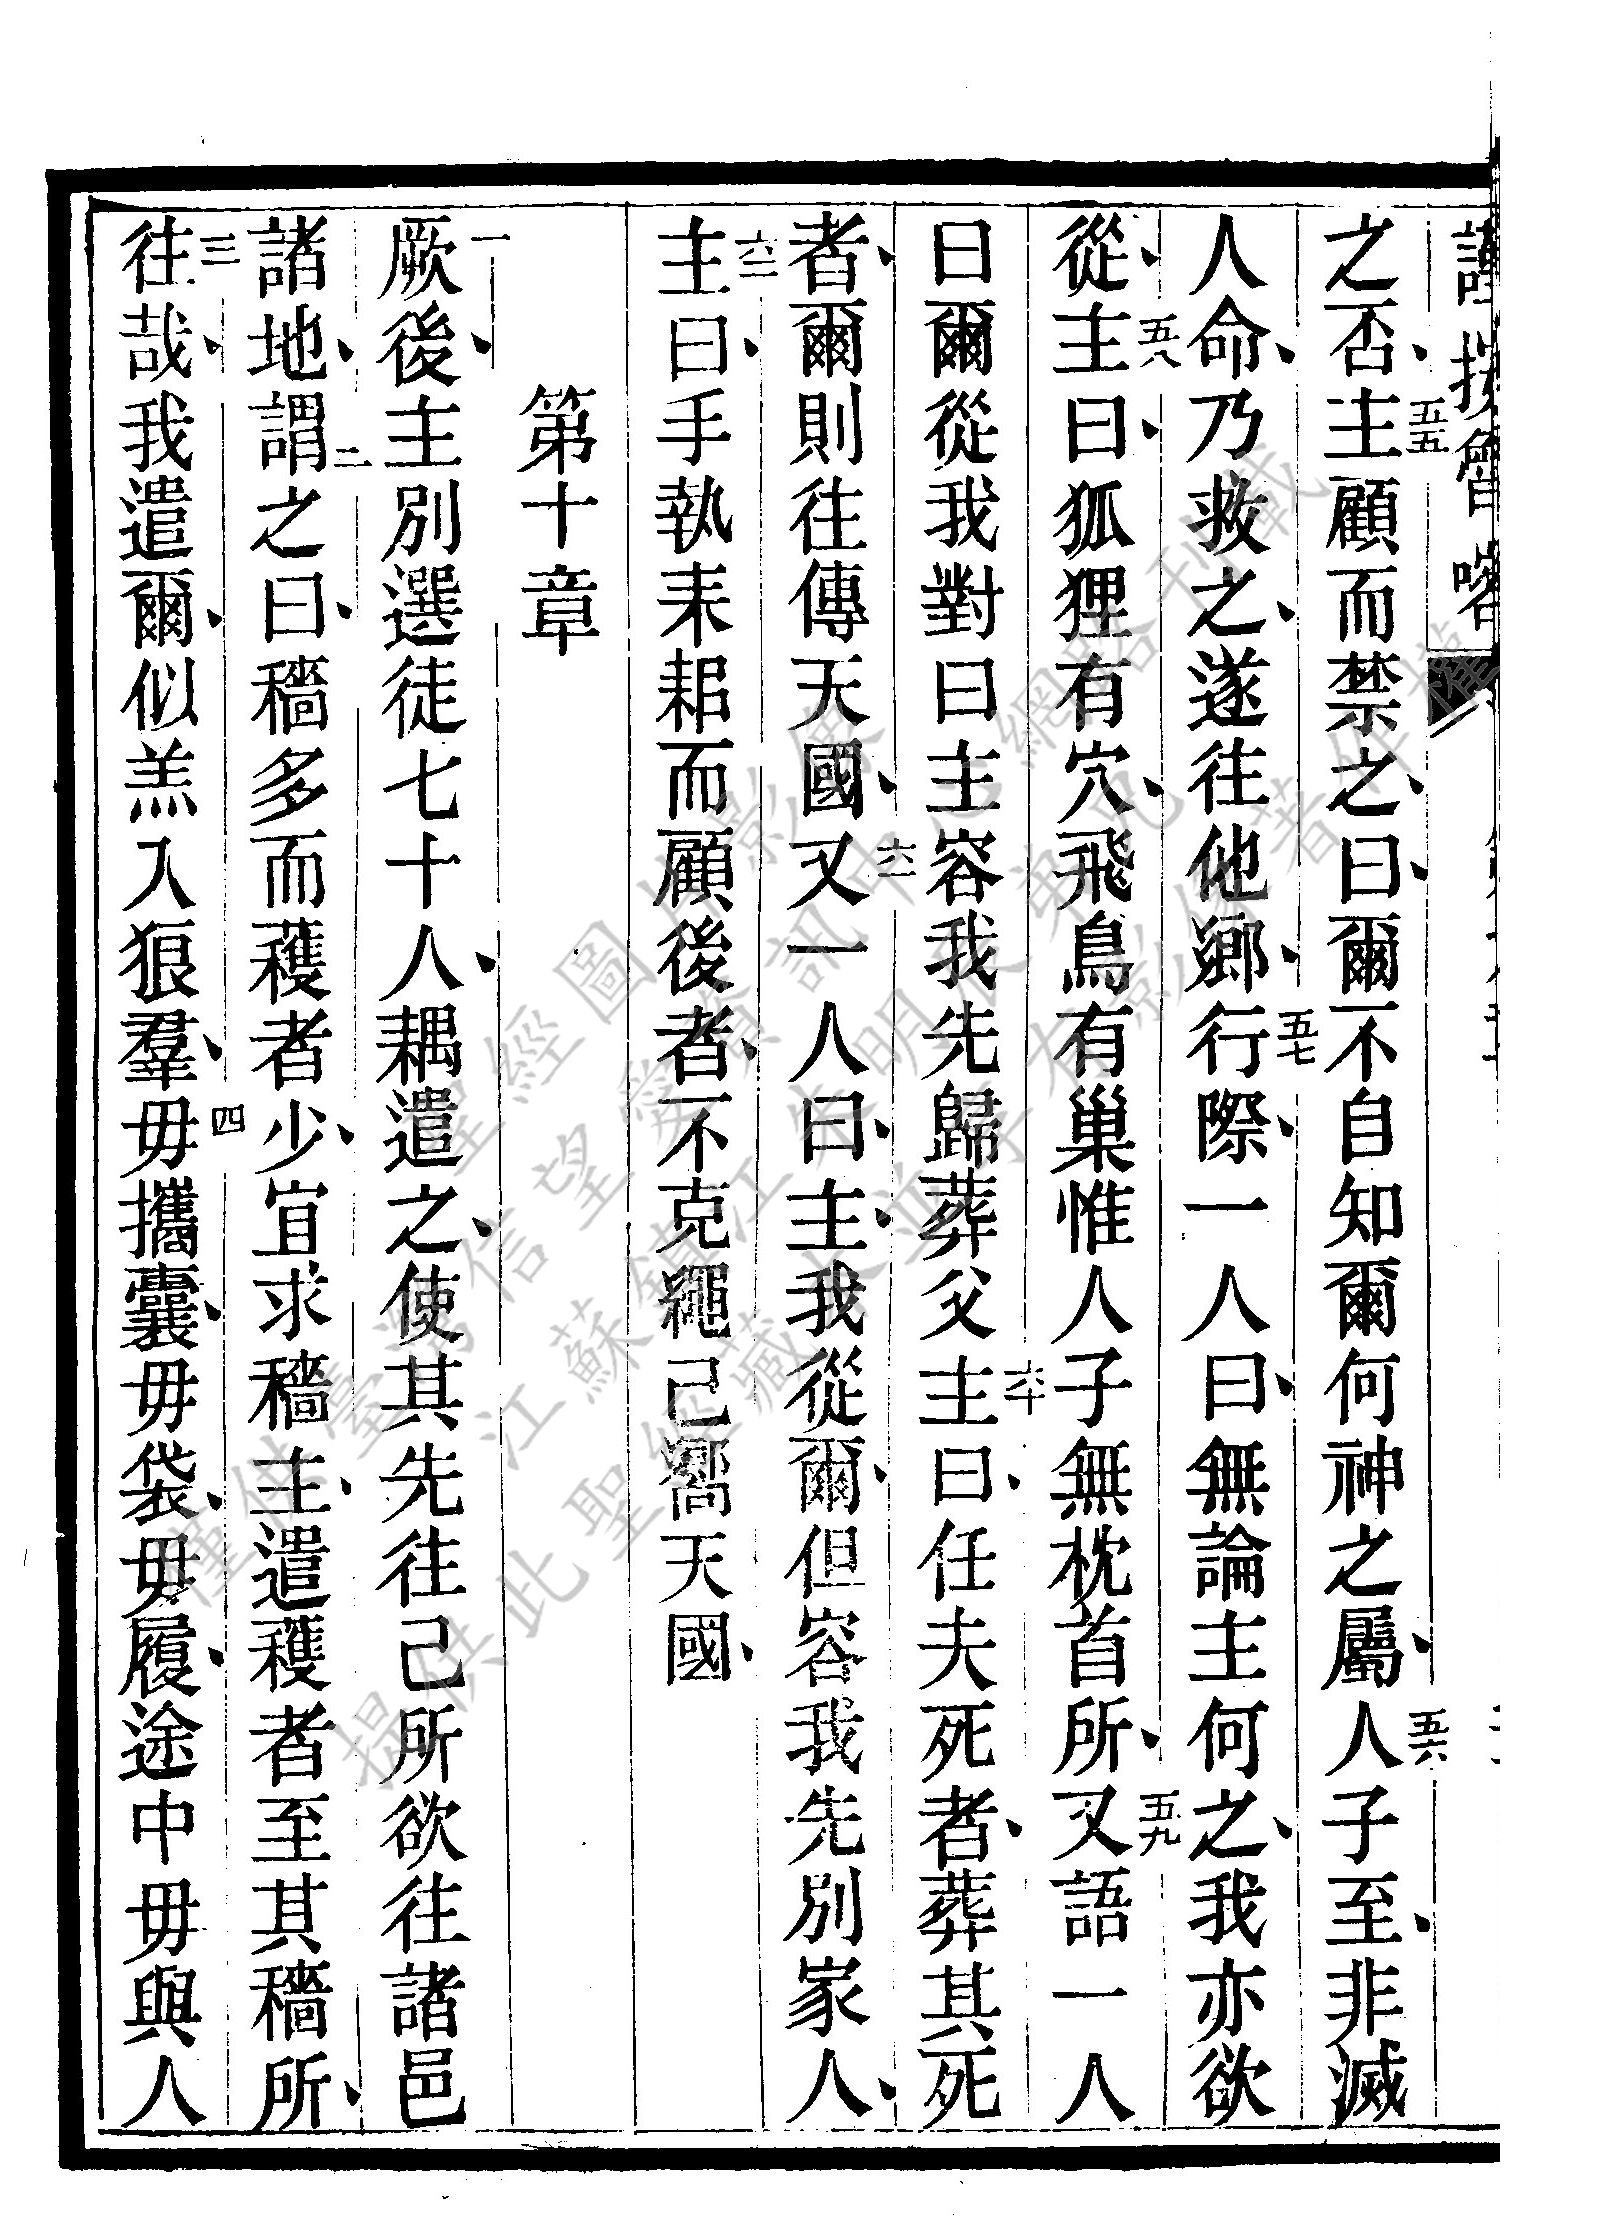 之否五五主顧而禁之曰爾不自知爾何神之屬五六人子至非滅
人命乃救之遂往他鄉五七行際一人曰無論主何之我亦欲
從五八主曰狐狸有穴飛鳥有巢惟人子無枕首所五九又語一人
曰爾從我對曰主容我先歸葬父六十主曰任夫死者葬其死
者爾則往傳天國六一又一人曰主我從爾但容我先別家人
六二主曰手執耒耜而顧後者不克繩己嚮天國
第十章
一厥後主別選徒七十人耦遣之使其先往己所欲往諸邑
諸地二謂之曰穡多而穫者少宜求穡主遣穫者至其穡所
三往哉我遣爾似羔入狼羣四毋攜囊毋袋毋履途中毋與人